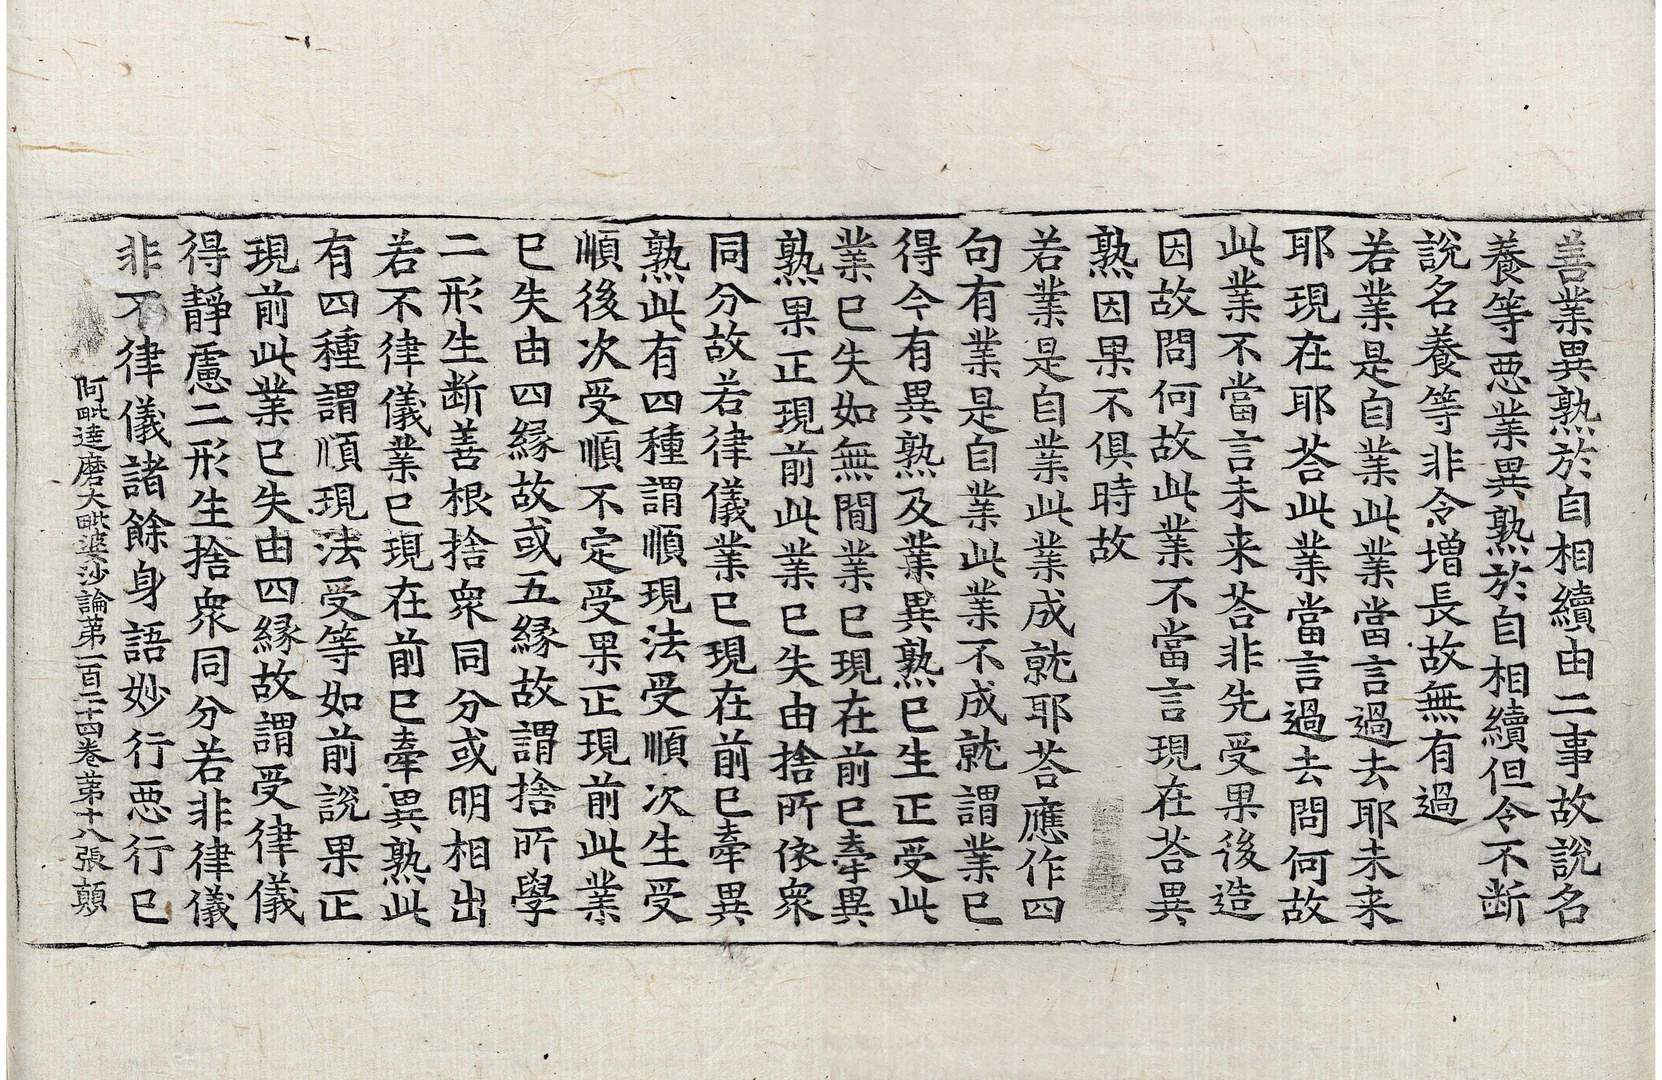 善業異熟於自相續由二事故說名
養等惡業異熟於自相續但令不斷
說名養等非令增長故無有過
若業是自業此業當言過去耶未来
耶現在耶荅此業當言過去問何故
此業不當言未来荅非先受果後造
因故問何故此業不當言現在荅異
熟因果不俱時故
若業是自業此業成就耶荅應作四
句有業是自業此業不成就謂業已
得今有異熟及業異熟已生正受此
業已失如無間業已現在前已牽異
熟果正現前此業已失由捨所依衆
同分故若律儀業已現在前已牽異
熟此有四種謂順現法受順次生受
順後次受順不定受果正現前此業
已失由四緣故或五緣故謂捨所學
二形生斷善根捨衆同分或明相出
若不律儀業已現在前已牽異熟此
有四種謂順現法受等如前說果正
現前此業已失由四緣故謂受律儀
得靜慮二形生捨衆同分若非律儀
非不律儀諸餘身語妙行惡行已
阿毗達磨大毗婆沙論第一百二十四卷 第十八張 顛